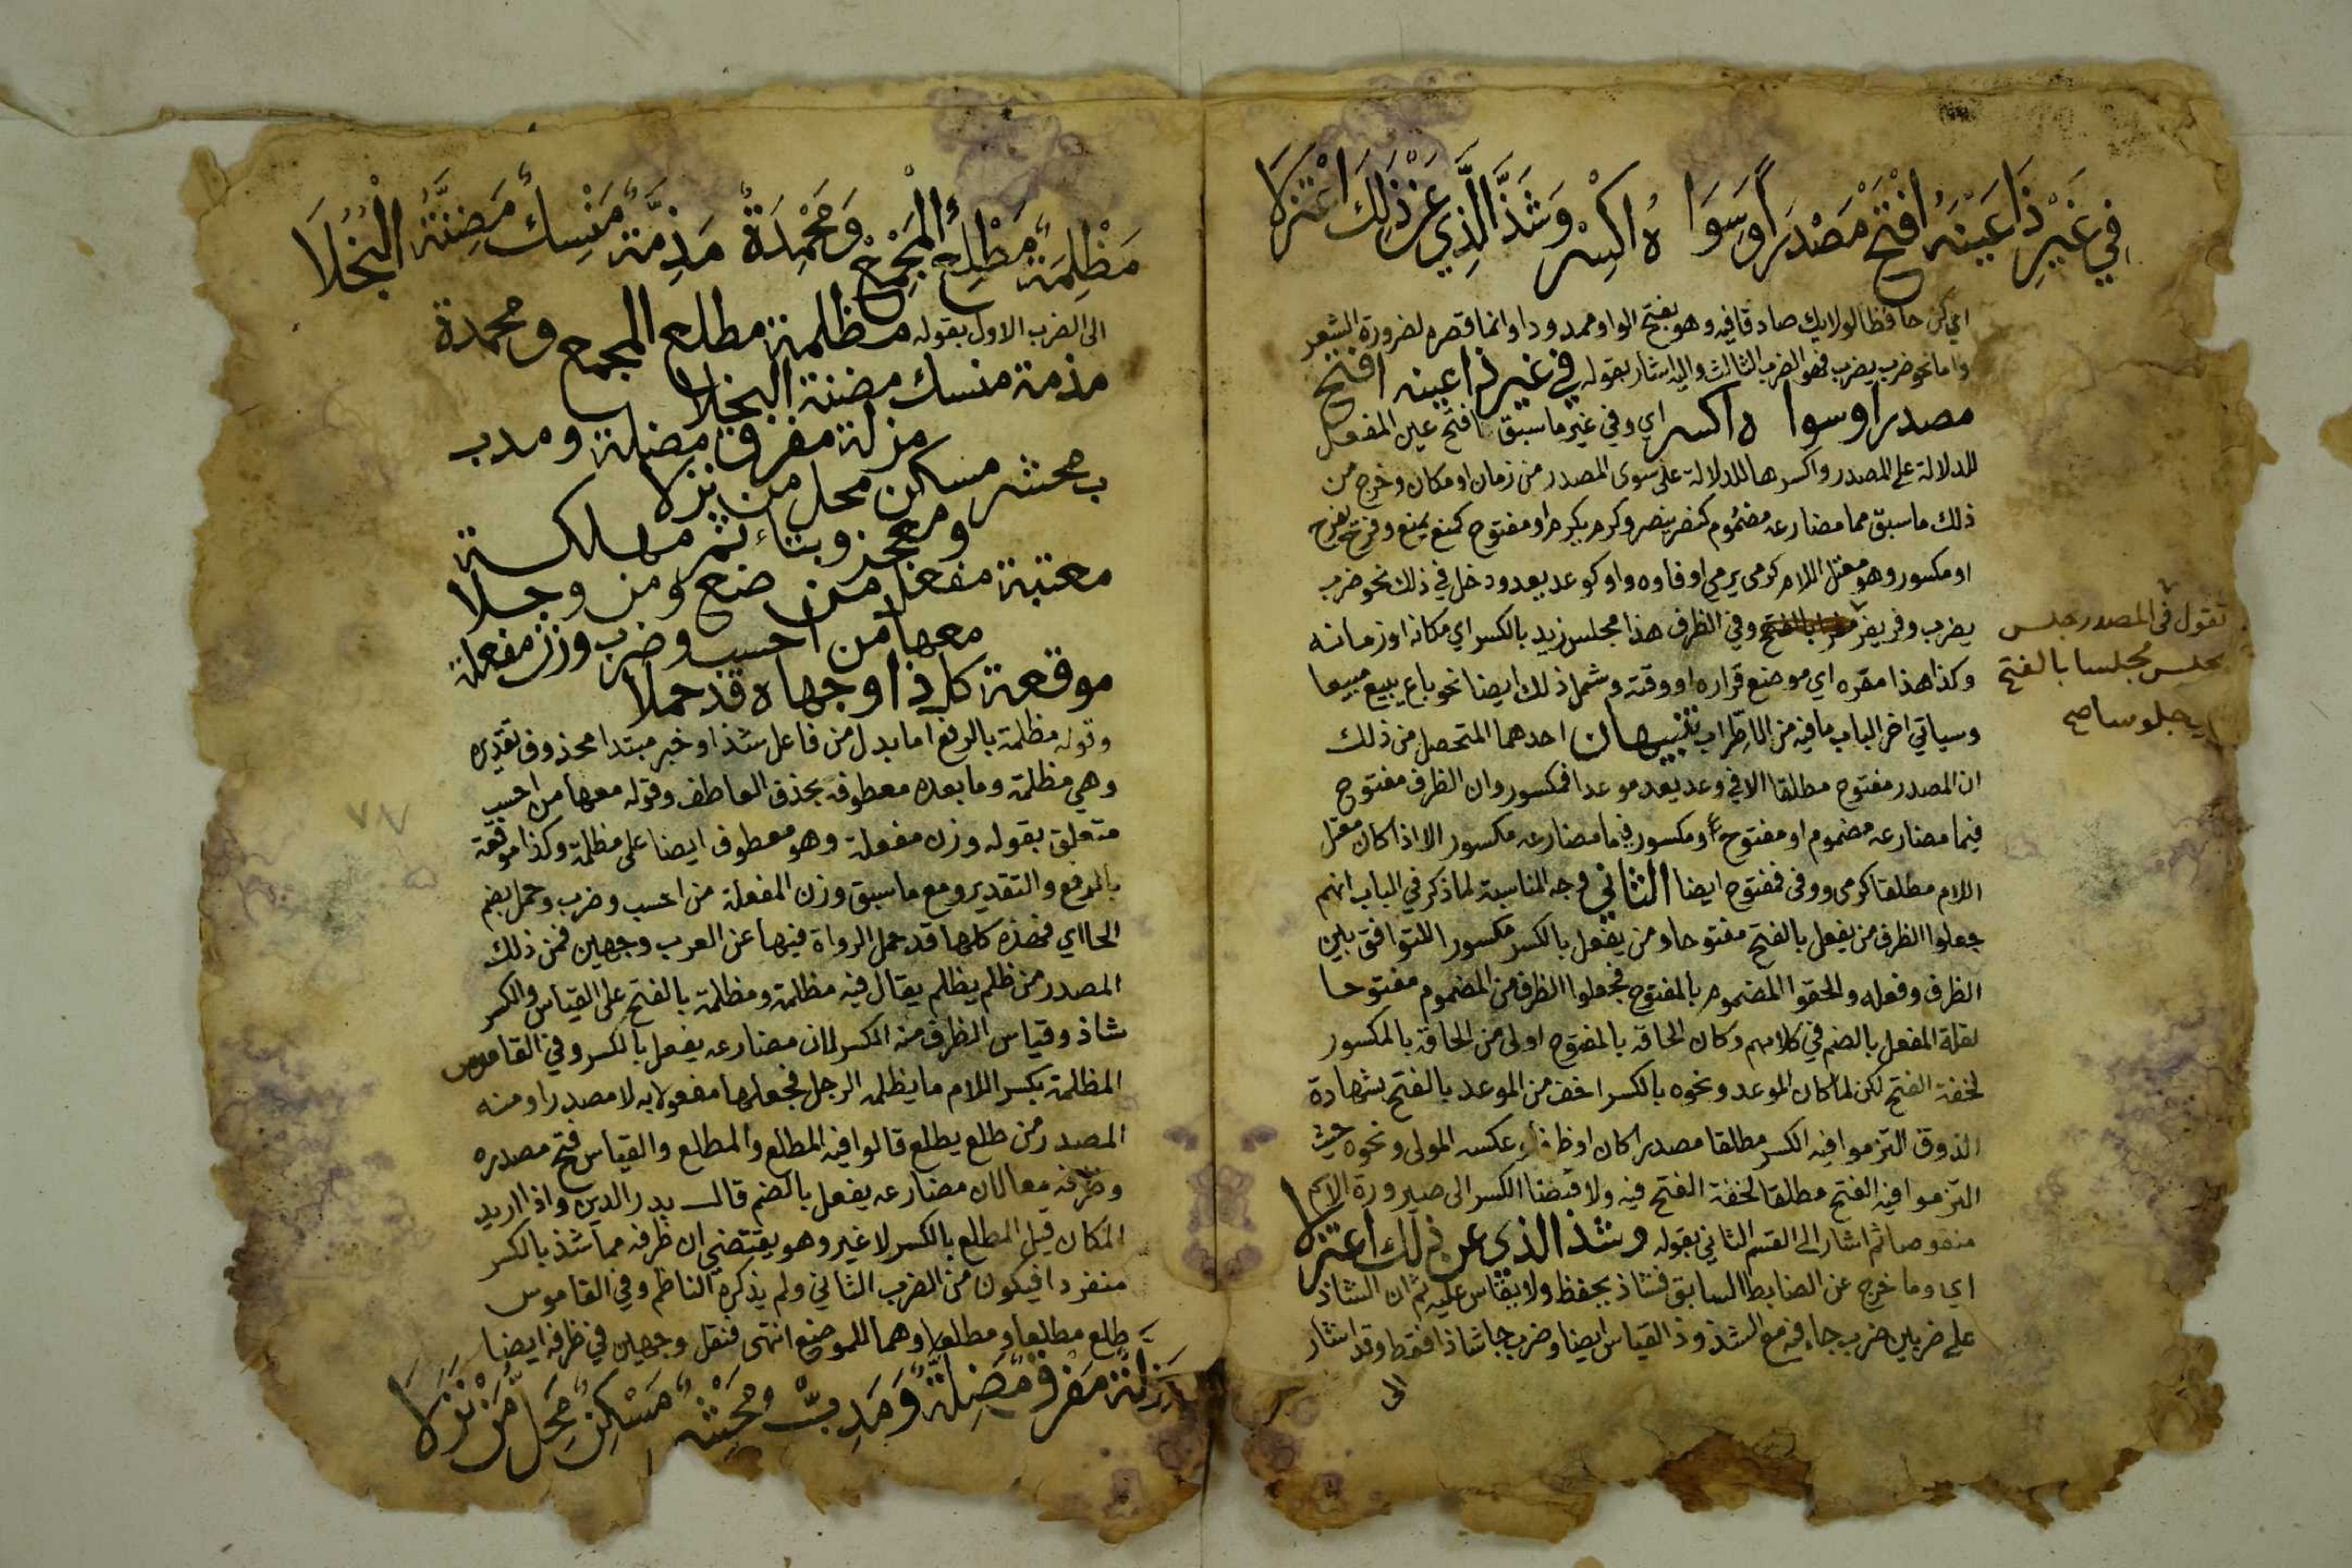 في غَيْرِ ذَا عَيْنَهُ افْتَحْ مَصْدَرًا وَسَوَا هُ اكْسِرْ وَشَذَّ الَّذِي عَنْ ذَلِكَ اعْتَزَلَا
اي كن حافظا لولايك صادقا فيه وهو بفتح الواو ممدودا وانما قصره لضرورة الشعر
واما نحو ضرب يضرب فهو الضرب الثالث واليه اشار بقوله في غير ذا عينه افتح
مصدرا وسوا ه اكسر اي وفي غير ما سبق افتح عين المفعل
للدلالة على المصدر واكسرها للدلالة على سوى المصدر من زمان او مكان وخرج من
ذلك ما سبق مما مضارعه مضموم كنصر ينصر وكرم يكرم او مفتوح كمنع يمنع وفرح يفرح
او مكسور وهو معتل اللام كرمى يرمي او فاوه واو كوعد يعد ودخل في ذلك نحو ضرب
يضرب وفر يفر وفي الظرف هذا مجلس زيد بالكسر اي مكانه او زمانه
تقول في المصدر جلس
يجلس مجلسا بالفتح
اي جلوسا صح
وكذا هذا مقره اي موضع قراره او وقته وشمل ذلك ايضا نحو باع يبيع مبيعا
وسياتي اخر الباب ما فيه من الاضطراب تنبيهان احدهما المتحصل من ذلك
ان المصدر مفتوح مطلقا الا في وعد يعد موعدا فمكسور وان الظرف مفتوح
فيما مضارعه مضموم او مفتوح ومكسور فيما مضارعه مكسور الا اذا كان معتل
اللام مطلقا كرمى ووفى فمفتوح ايضا الثاني وجه المناسبة لما ذكر في الباب انهم
جعلوا الظرف من يفعل بالفتح مفتوحا ومن يفعل بالكسر مكسورا للتوافق بين
الظرف وفعله والحقوا المضموم بالمفتوح فجعلوا الظرف من المضموم مفتوحا
لقلة المفعل بالضم في كلامهم وكان الحاقه بالمفتوح اولى من الحاقه بالمكسور
لخفة الفتح لكن لما كان الموعد ونحوه بالكسر اخف من الموعد بالفتح بشهادة
الذوق التزموا فيه الكسر مطلقا مصدرا كان او ظرفا عكس المولى ونحوه حيث
التزموا فيه الفتح مطلقا لخفة الفتح فيه ولاقتضا الكسر الى صيرورة الاسم
منقوصا ثم اشار الى القسم الثاني بقوله وشذ الذي عن ذلك اعتزلا
اي وما خرج عن الضابط السابق فشاذ يحفظ ولا يقاس عليه ثم ان الشاذ
على ضربين ضرب جاء فيه مع الشذوذ القياس ايضا وضرب جا شاذا فقط وقد اشار
الى
مَظْلِمَةٌ مَطْلِعُ الْمَجْمِعُ وَمَحْمِدَةٌ مَذِمَّةٌ مَنْسِكٌ مَضِنَّةُ الْبُخَلَا
الى الضرب الاول بقوله مظلمة مطلع المجمع ومحمدة
مذمة منسك مضنة البخلا
مزلة مفرق مضلة ومدب
ب محشر مسكن محل من نزلا
ومعجز وبتاء ثم مهلكة
معتبة مفعل من ضع ومن وجلا
معها من احسب وضرب وزن مفعلة
موقعة كل ذا وجهاه قد حملا
وقوله مظلمة بالرفع اما بدل من فاعل شذ او خبر مبتدا محذوف تقديره
وهي مظلمة وما بعده معطوف بحذف العاطف وقوله معها من احسب
متعلق بقوله وزن مفعلة وهو معطوف ايضا على مظلمة وكذا موقعة
بالرفع والتقدير ومع ما سبق وزن المفعلة من احسب وضرب وحمل بضم
الحا اي فهذه كلها قد حمل الرواة فيها عن العرب وجهين فمن ذلك
المصدر من ظلم يظلم يقال فيه مظلمة ومظلمة بالفتح على القياس والكسر
شاذ وقياس الظرف منه الكسر لان مضارعه يفعل بالكسر وفي القاموس
المظلمة بكسر اللام ما يظلمه الرجل فجعلها مفعولا به لا مصدرا ومنه
المصدر من طلع يطلع قالوا فيه المطلع والمطلع والقياس فتح مصدره
وظرفه معا لان مضارعه يفعل بالضم قال بدر الدين واذا اريد
المكان قيل المطلع بالكسر لا غير وهو يقتضي ان ظرفه مما شذ بالكسر
منفردا فيكون من الضرب الثاني ولم يذكره الناظم وفي القاموس
طلع مطلعا ومطلعا وهما للموضع انتهى فنقل وجهين في ظرفه ايضا
مَزِلَّةٌ مَفْرِقٌ مَضِلَّةٌ وَمَدِبٌّ مَحْشِرٌ مَسْكِنٌ مَحِلُّ مَنْ نَزَلَا
٧٨